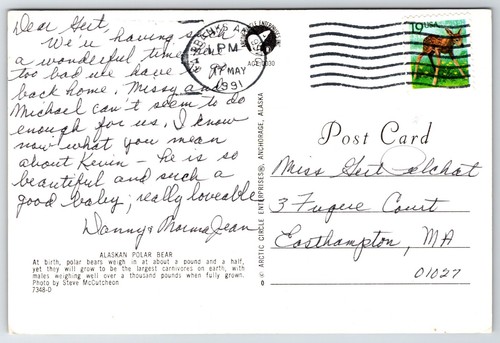 Dear Gert,
We're having such
a wonderful time here
too bad we have to go
back home. Missy and
Michael can't seem to do
enough for us. I know
now what you mean
about Kevin - he is so
beautiful and such a
good baby; really loveable
Danny & Norma Jean
ALASKAN POLAR BEAR
At birth, polar bears weigh in at about a pound and a half,
yet they will grow to be the largest carnivores on earth, with
males weighing well over a thousand pounds when fully grown.
Photo by Steve McCutcheon
7348-D
PM
MAY
1991
© ARCTIC CIRCLE ENTERPRISES®, ANCHORAGE, ALASKA
19 USA
Post Card
Miss Gert
3 Court
Easthampton, MA
01027